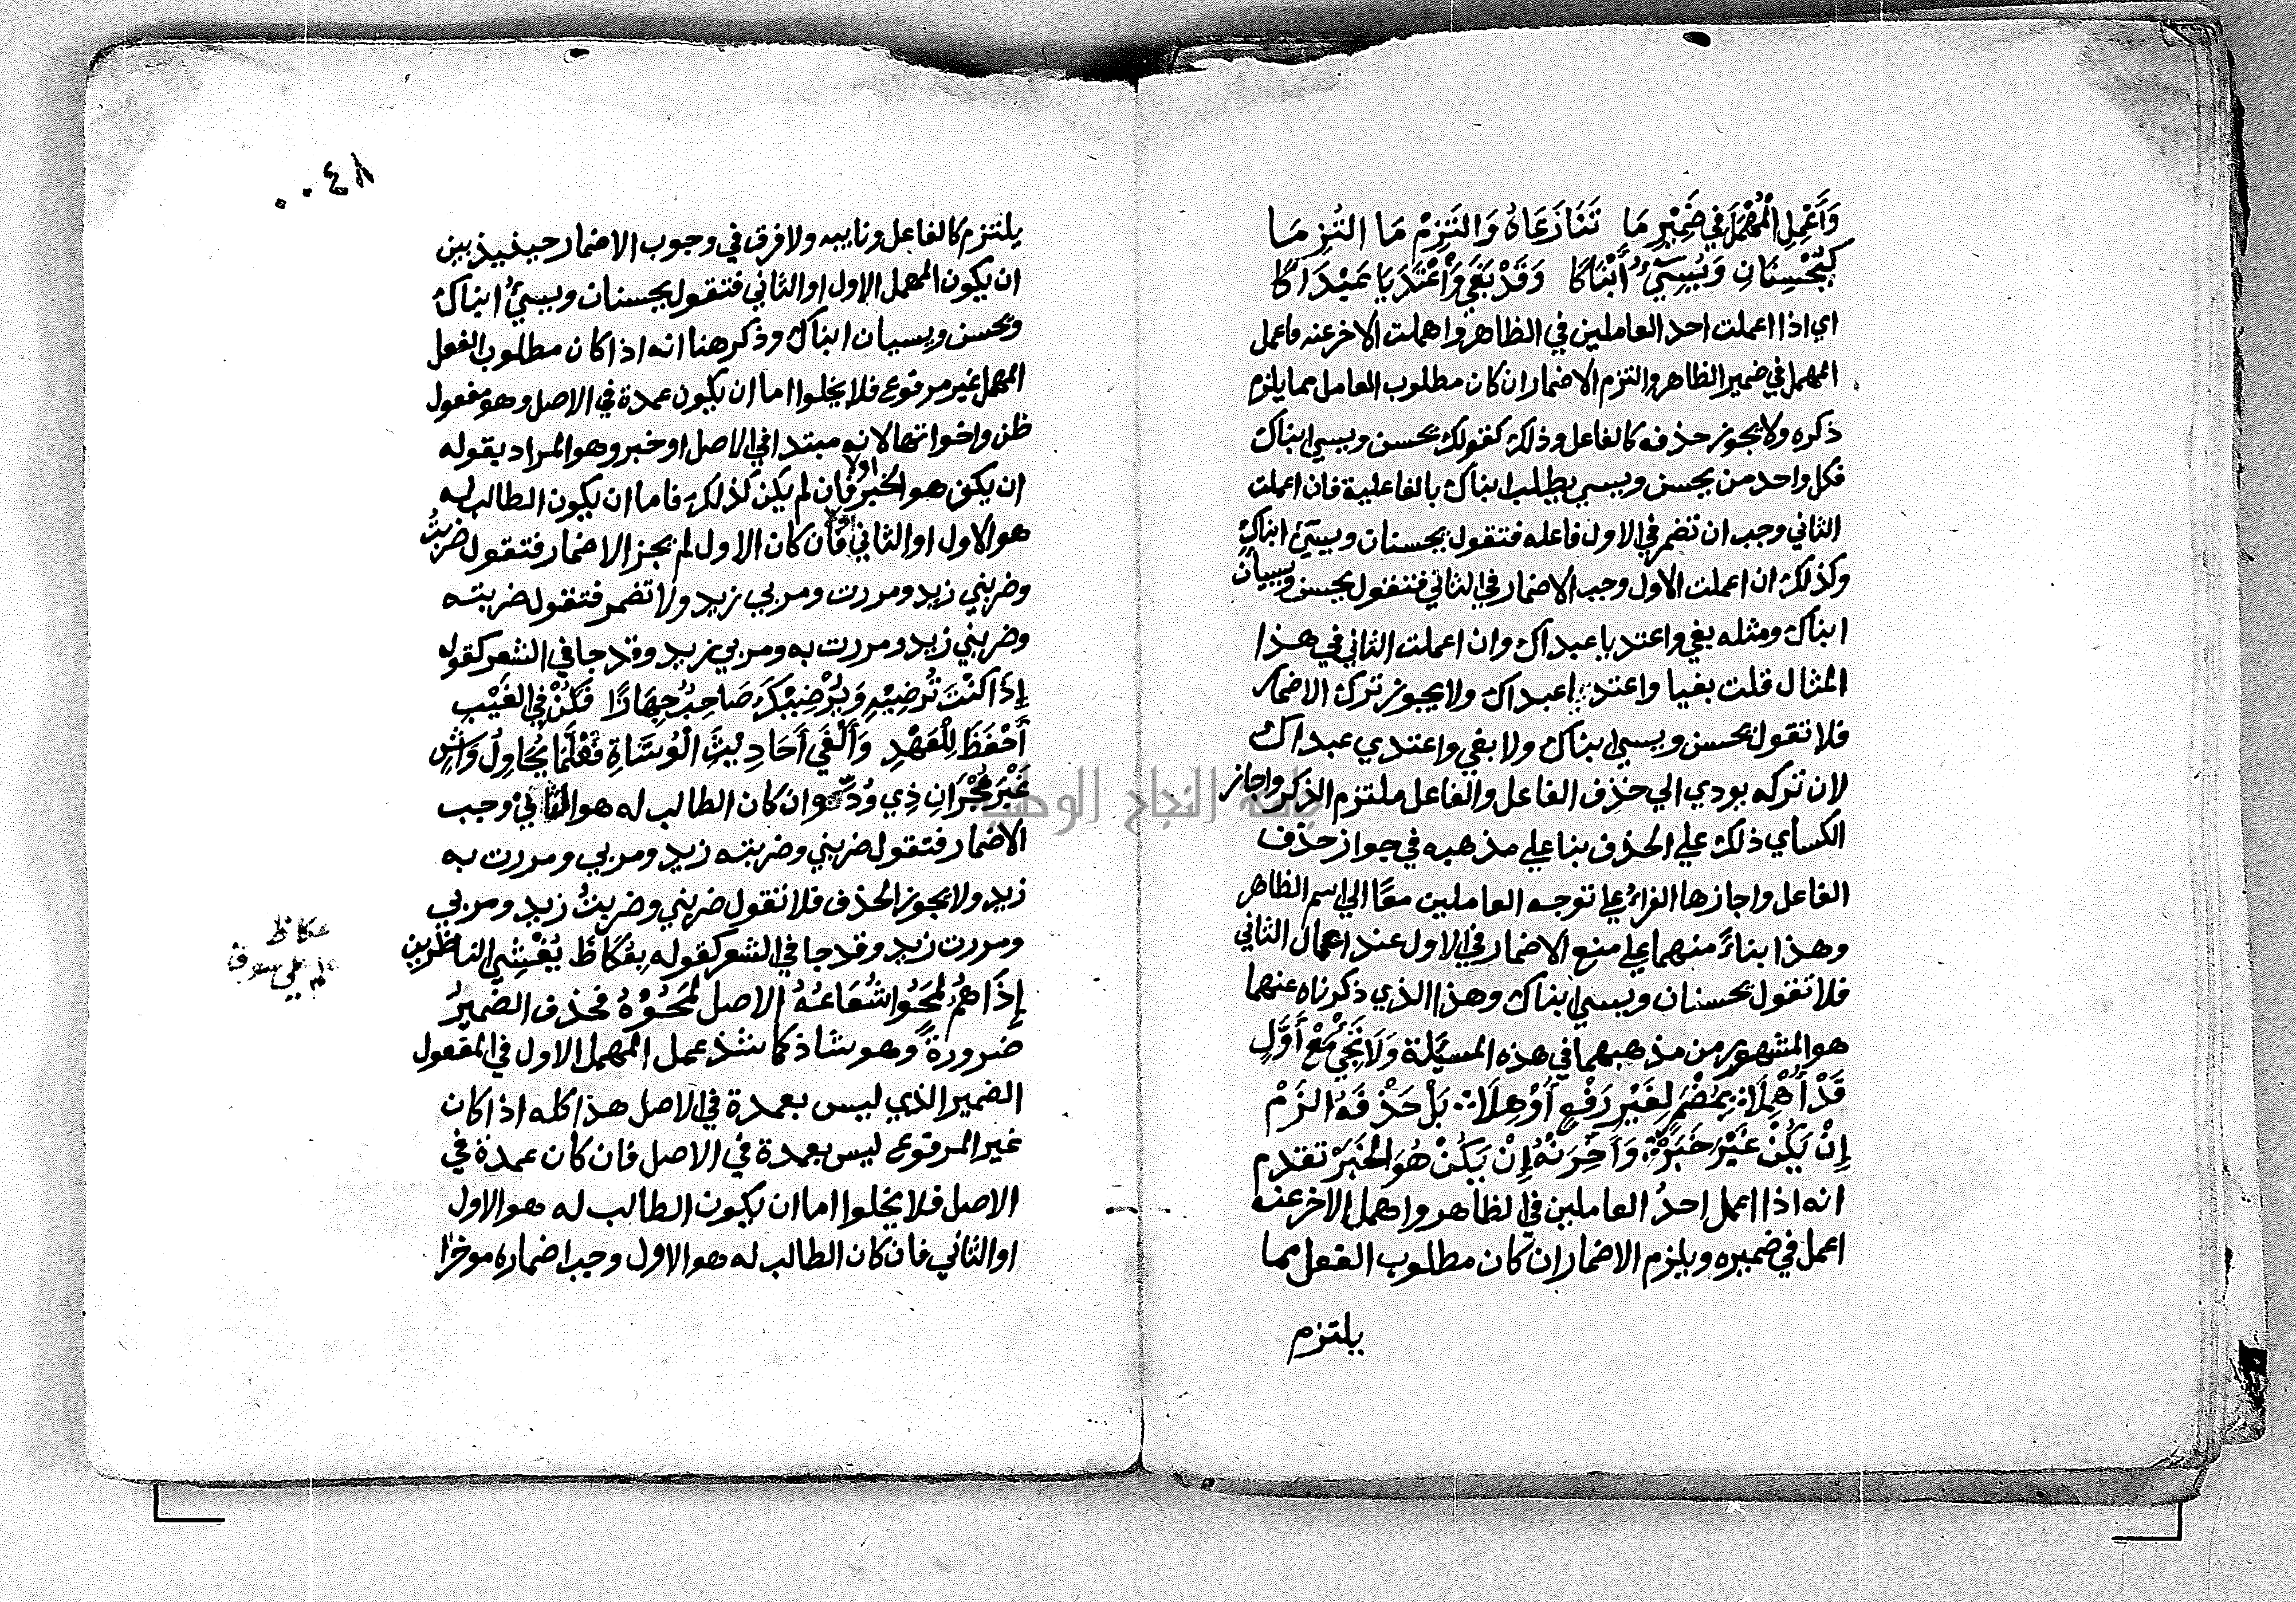 وَأَعْمِلِ الْمُهْمَلَ فِي ضَمِيرِ مَا تَنَازَعَاهُ وَالْتَزِمْ مَا الْتُزِمَا
كَيُحْسِنَانِ وَيُسِيءُ أَبْنَاكَا وَقَدْ بَغَى وَاعْتَدَيَا عَبْدَاكَا
اي اذا اعملت احد العاملين في الظاهر واهملت الاخر عنه فاعمل
المهمل في ضمير الظاهر والتزم الاضمار ان كان مطلوب العامل مما يلزم
ذكره ولا يجوز حذفه كالفاعل وذلك كقولك يحسن ويسي ابناك
فكل واحد من يحسن ويسي يطلب ابناك بالفاعلية فان اعملت
الثاني وجب ان تضمر في الاول فاعله فتقول يحسنان ويسيئ ابناك
وكذلك ان اعملت الاول وجب الاضمار في الثاني فتقول يحسن ويسيان
ابناك ومثله بغي واعتديا عبداك وان اعملت الثاني في هذا
المثال قلت بغيا واعتدي عبداك ولا يجوز ترك الاضمار
فلا تقول يحسن ويسي ابناك ولا بغي واعتدي عبداك
لان تركه يودي الي حذف الفاعل والفاعل ملتزم الذكر واجاز
الكسأي ذلك علي الحذف بنا علي مذهبه في جواز حذف
الفاعل واجازها الفراء علي توجه العاملين معًا الي اسم الظاهر
وهذا بناءً منهما علي منع الاضمار في الاول عند اعمال الثاني
فلا تقول يحسنان ويسي ابناك وهذا الذي ذكرناه عنهما
هو المشهور من مذهبهما في هذه المسئلة وَلَا تَجِيْ مَعْ أَوَّلٍ
قَدْ أُهْمِلَا بِمُضْمَرٍ لِغَيْرِ رَفْعٍ أُوْهِلَا بَلْ حَذْفَهُ الْزَمْ
إِنْ يَكُنْ غَيْرَ خَبَرْ وَأَخِّرَنْهُ إِنْ يَكُنْ هُوَ الْخَبَرْ تقدم
انه اذا اعمل احدُ العاملين في الظاهر واهمل الاخر عنه
اعمل في ضميره ويلزم الاضمار ان كان مطلوب الفعل مما
يلتزم
٠٠٤٨
يلتزم كالفاعل ونايبه ولا فرق في وجوب الاضمار حينيذ بين
ان يكون المهمل الاول او الثاني فتقول يحسنان ويسيُ ابناك
ويحسن ويسيان ابناك وذكر هنا انه اذا كان مطلوب الفعل
المهمل غير مرفوع فلا يخلوا اما ان يكون عمدة في الاصل وهو مفعول
ظن واخواتها لانه مبتدا في الاصل او خبر وهو المراد بقوله
ان يكن هو الخبر اولا فان لم يكن كذلك فاما ان يكون الطالب له
هو الاول او الثاني فان كان الاول لم يجز الاضمار فتقول ضربتُ
وضربني زيد ومررت ومر بي زيد ولا تضمر فتقول ضربته
وضربني زيد ومررت به ومر بي زيد وقد جا في الشعر كقوله
إِذَا كُنْتَ تُرْضِيْهِ وَيُرْضِيْكَ صَاحِبُ جِهَارًا فَكُنْ فِي الْغَيْبِ
أَحْفَظَ لِلْعَهْدِ وَأَلْغِي أَحَادِيْثَ الْوُشَاةِ فَقَلَّمَا يُحَاوِلُ وَاشٍ
غَيْرَ هِجْرَانِ ذِي وُدٍّ وان كان الطالب له هو الثاني وجب
الاضمار فتقول ضربني وضربته زيد ومر بي ومررت به
زيد ولا يجوز الحذف فلا تقول ضربني وضربتُ زيد ومر بي
ومررت زيد وقد جا في الشعر كقوله بِعُكَاظَ يُعْشِي الناظرين
إِذَا هُمُ لَمَحُوا شُعَاعُهُ الاصل لَمَحُوْهُ فحذف الضميرُ
ضرورةً وهو شاذ كما شذ عمل المهمل الاول في المفعول
الضمير الذي ليس بعمدة في الاصل هذا كله اذا كان
غير المرفوع ليس بعمدة في الاصل فان كان عمدة في
الاصل فلا يخلوا اما ان يكون الطالب له هو الاول
او الثاني فان كان الطالب له هو الاول وجب اضماره موخرا
عكاظ
علي سوق
جامعة النجاح الوطنية